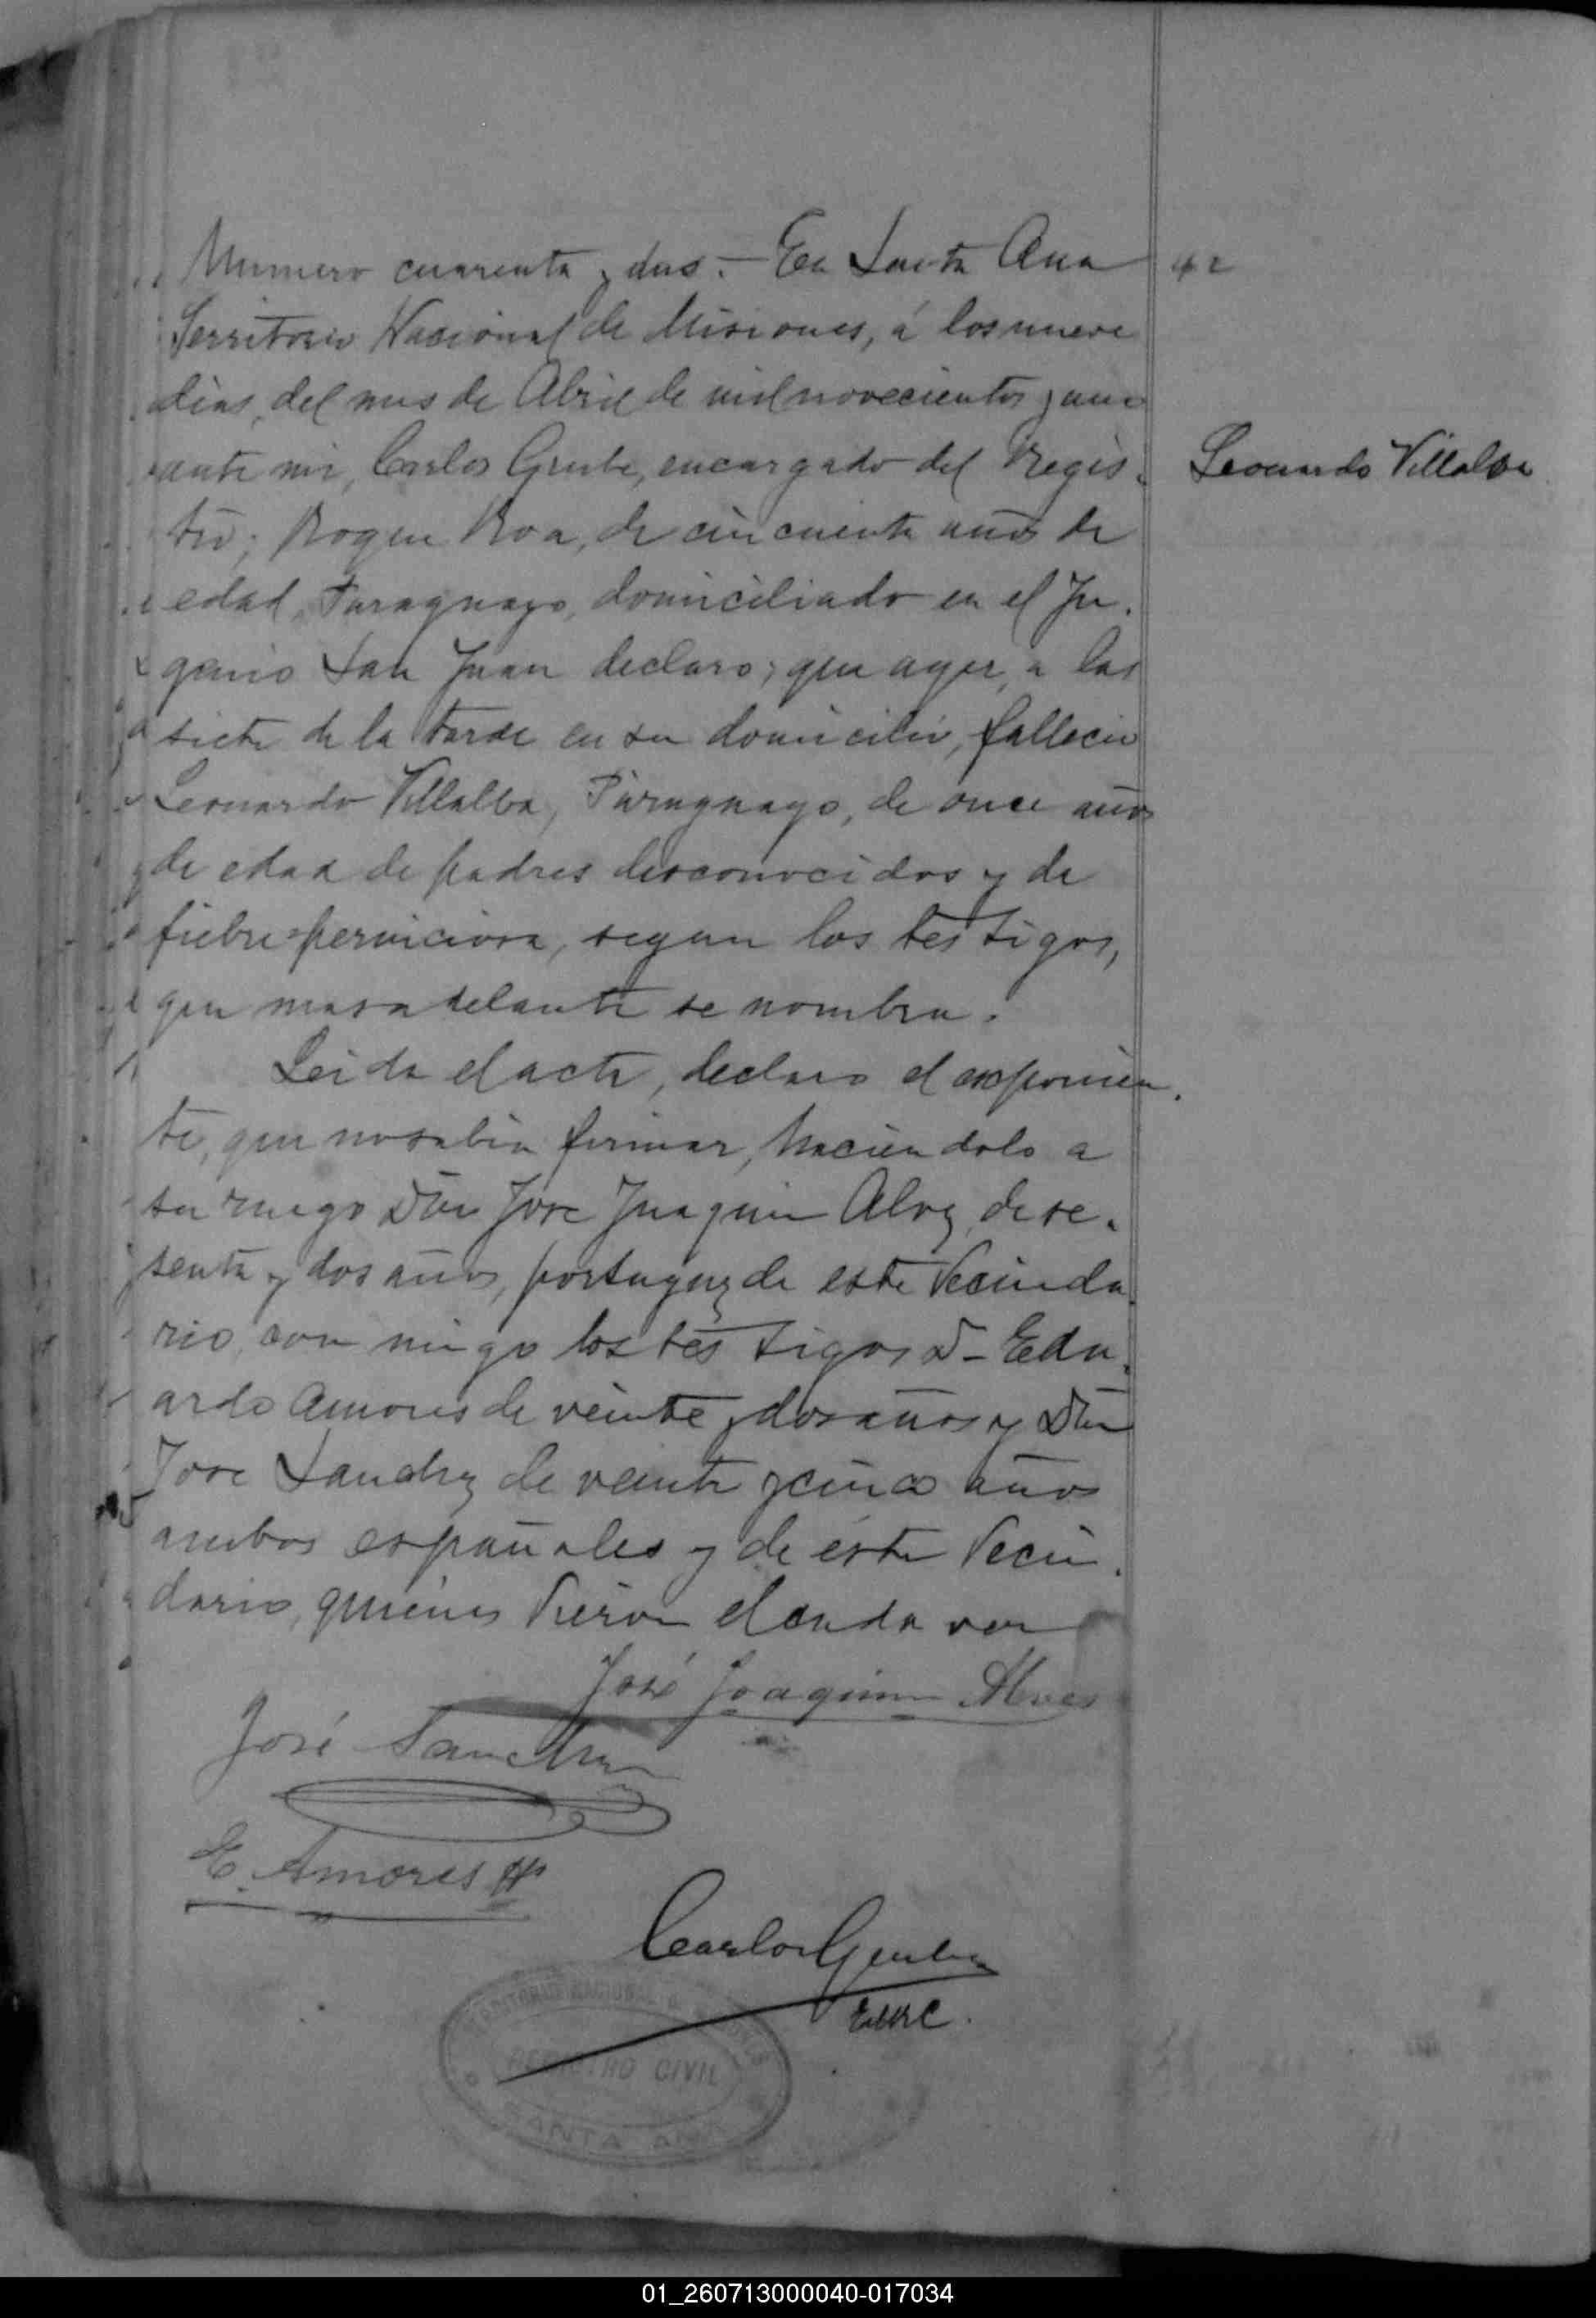 Numero cuarenta y dos.- En Santa Ana
42
Territorio Nacional de Misiones, á los nueve
dias, del mes de Abril de mil novecientos y uno
ante mi, Carlos Grube, encargado del Regis-
Leonardo Villalba
tro; Roque Roa, de cincuenta años de
edad, Paraguayo, domiciliado en el In-
genio San Juan declaro; que ayer, a las
siete de la tarde en su domicilio, fallecio
Leonardo Villalba, Paraguayo, de once años
de edad de padres desconocidos y de
fiebre perniciosa, segun los testigos,
que mas adelante se nombra.
Leida el acta, declaro el exponien-
te, que no sabia firmar, haciendolo a
su ruego Don Jose Juaquin Alvez, de se-
senta y dos años, portuguez de este Vecinda-
rio, con migo los testigos D- Edu-
ardo Amores de veinte y dos años y Don
Jose Sanchez de veinte y cinco años
ambos españoles y de este Vecin-
dario, quienes vieron el cadaver
José Joaquim Alves
José Sanchez
E. Amores
Carlos Grube
REGISTRO CIVIL
SANTA ANA
01_260713000040-017034